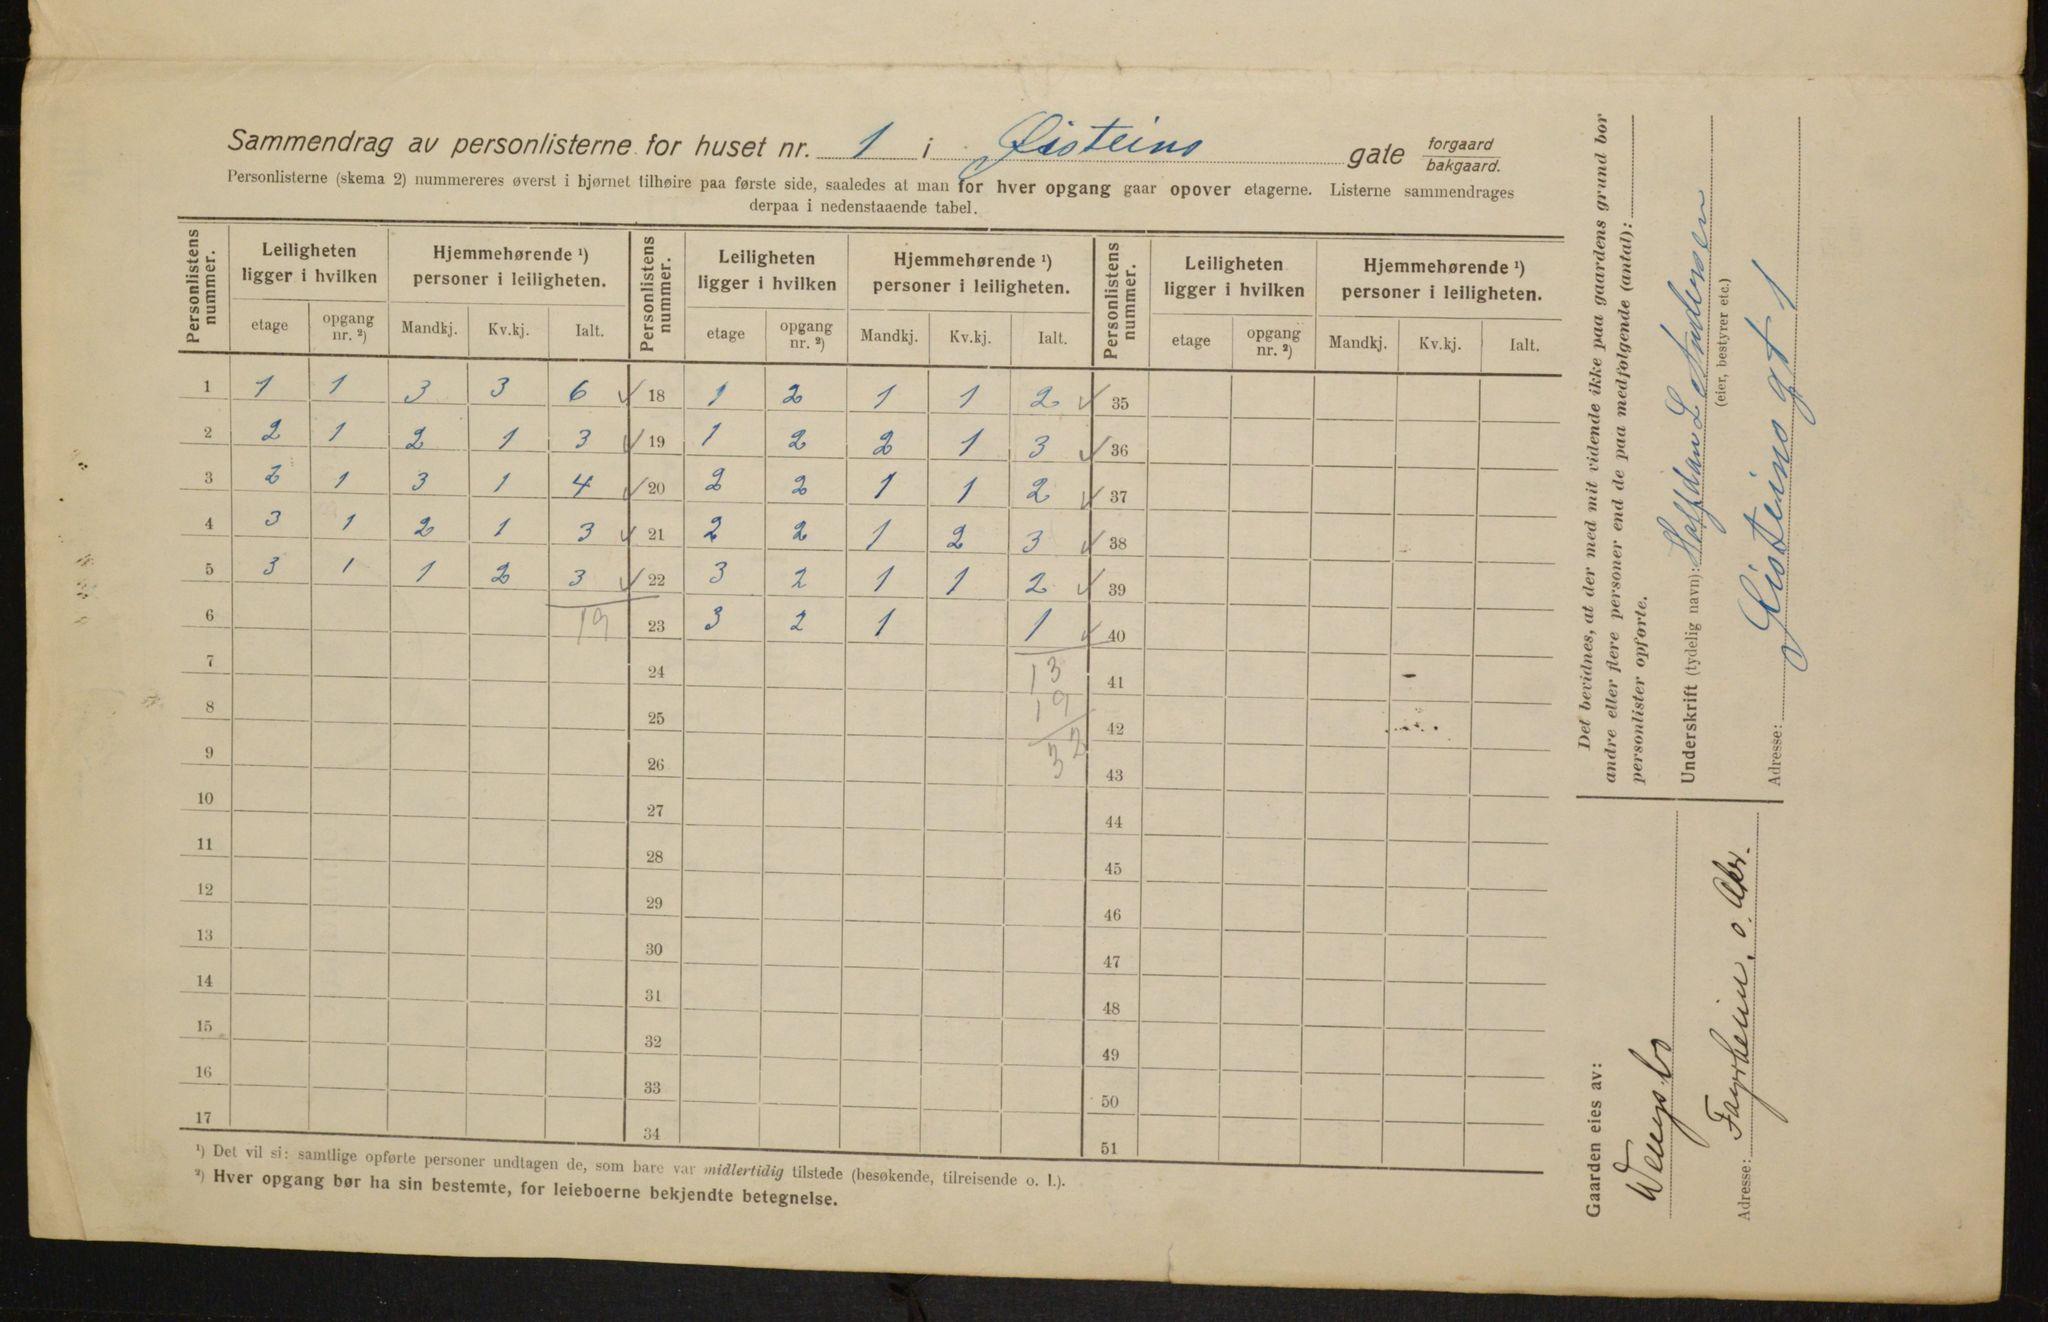 Sammendrag av personlisterne for huset nr. 1 i Øisteins gate forgaard bakgaard.
Personlisterne (skema 2) nummereres øverst i hjørnet tilhøire paa første side, saaledes at man for hver opgang gaar opover etagerne. Listerne sammendrages
derpaa i nedenstaaende tabel.
Personlistens nummer. Leiligheten ligger i hvilken Hjemmehørende ¹) personer i leiligheten. Personlistens nummer. Leiligheten ligger i hvilken Hjemmehørende ¹) personer i leiligheten. Personlistens nummer. Leiligheten ligger i hvilken Hjemmehørende ¹) personer i leiligheten.
etage opgang nr. ²) Mandkj. Kv.kj. Ialt. etage opgang nr. ²) Mandkj. Kv.kj. Ialt. etage opgang nr. ²) Mandkj. Kv.kj. Ialt.
1 1 1 3 3 6 ✓ 18 1 2 1 1 2 ✓ 35
2 2 1 2 1 3 ✓ 19 1 2 2 1 3 ✓ 36
3 2 1 3 1 4 ✓ 20 2 2 1 1 2 ✓ 37
4 3 1 2 1 3 ✓ 21 2 2 1 2 3 ✓ 38
5 3 1 1 2 3 ✓ 22 3 2 1 1 2 ✓ 39
6 19 23 3 2 1 1 ✓ 40
7 24 13 41
8 25 19 42
9 26 32 43
10 27 44
11 28 45
12 29 46
13 30 47
14 31 48
15 32 49
16 33 50
17 34 51
¹) Det vil si: samtlige opførte personer undtagen de, som bare var midlertidig tilstede (besøkende, tilreisende o. l.).
²) Hver opgang bør ha sin bestemte, for leieboerne bekjendte betegnelse.
Det bevidnes, at der med mit vidende ikke paa gaardens grund bor
andre eller flere personer end de paa medfølgende (antal):
personlister opførte.
Underskrift (tydelig navn): Halfdan L Andersen
(eier, bestyrer etc.)
Adresse: Øisteins gt 1
Gaarden eies av:
Adresse: